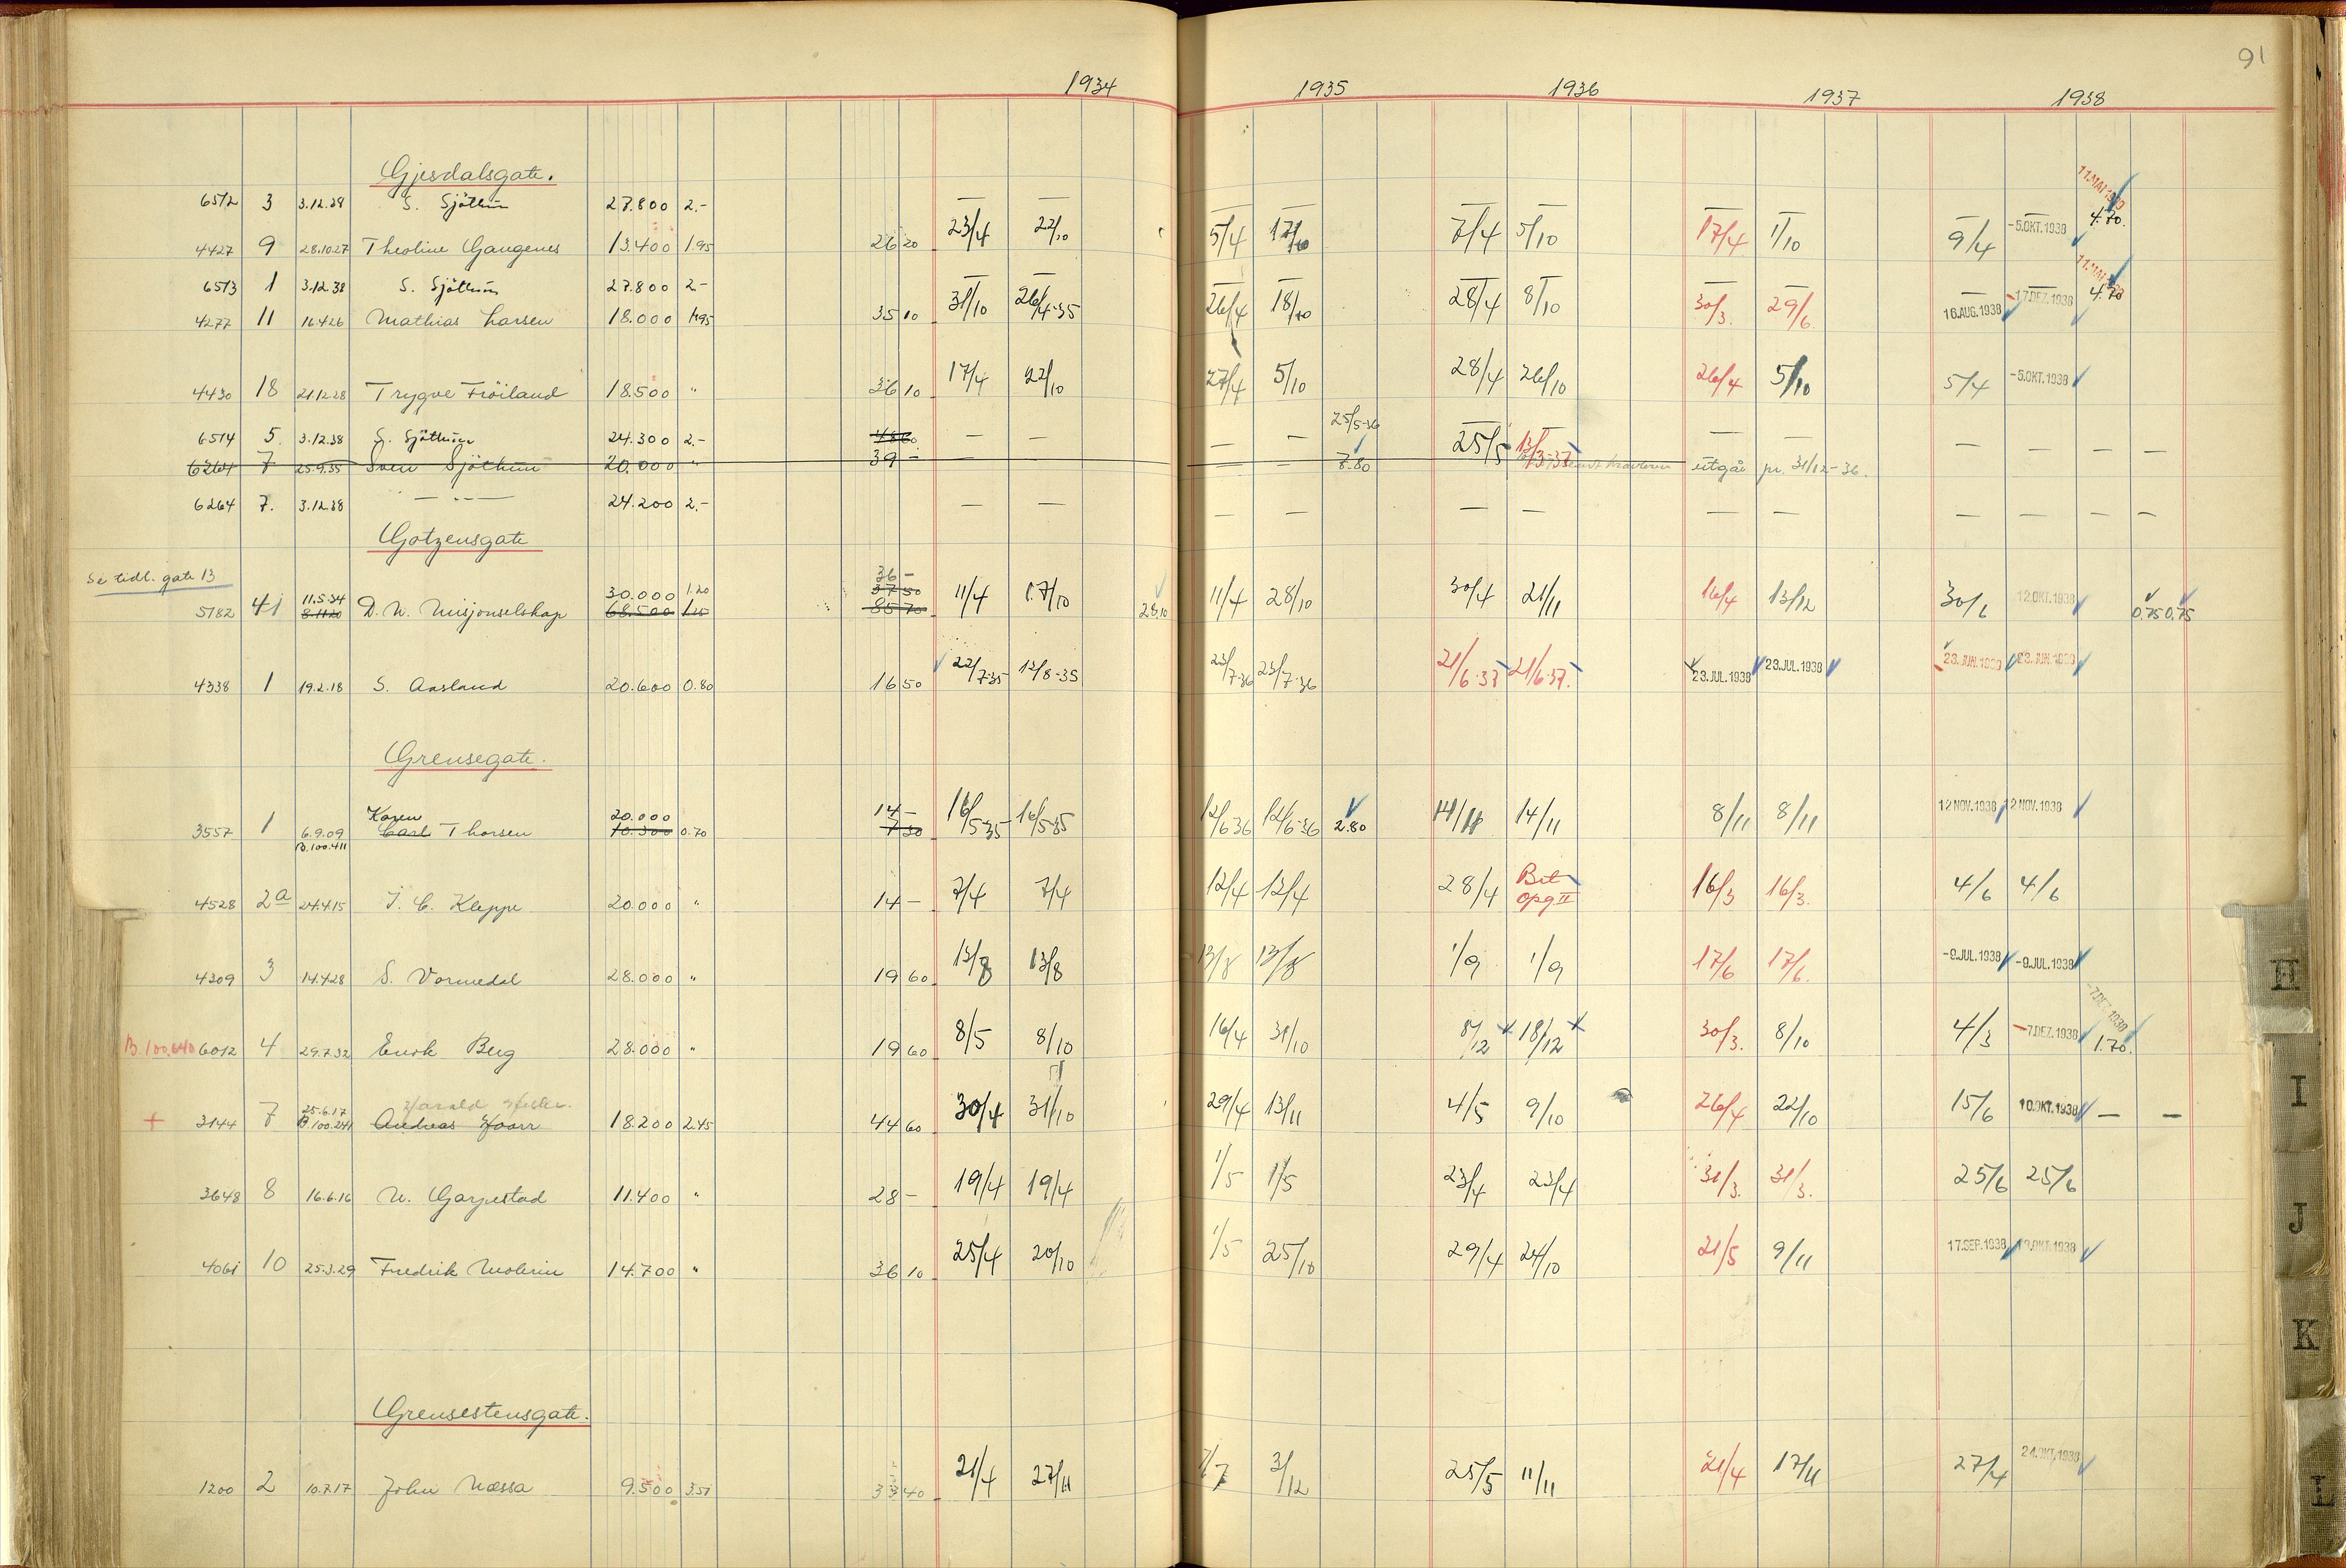 91
1934 1935 1936 1937 1938
Gjesdalsgate.
11.MAI 1939
6512 3 3.12.38 S. Sjöthun 27.800 2.- — — — — — — — — — — 4.70.
4427 9 28.10.27 Theoline Gaugenes 13.400 1.95 26 20 23/4 22/10 5/4 17/10 7/4 5/10 17/4 1/10 9/4 -5.OKT.1938
11.MAI
6513 1 3.12.38 S. Sjöthun 27.800 2- — — — — — — — — — — 4.70
4277 11 16.4.26 Mathias Larsen 18.000 1.95 35 10 31/10 26/4-35 26/4 18/10 28/4 8/10 30/3. 29/6. 16.AUG.1938 17.DEZ.1938
4430 18 21.12.28 Trygve Fröiland 18.500 " 36 10 17/4 22/10 27/4 5/10 28/4 26/10 26/4 5/10 5/4 -5.OKT.1938
25/5-36
6514 5. 3.12.38 S. Sjöthun 24.300 2.- 48 60 — — — — — — — — — —
6264 7 25.9.35 Sven Sjöthun 20.000 " 39 - — — 7.80 25/5 13/3-37 utgår pr. 31/12-36.
6264 7. 3.12.38 — " — 24.200 2.- — — — — — — — — — — — —
Gotzensgate
Se tidl. gate 13
36 -
11.5.34 30.000 1.20 37 50
5182 41 8.11.20 D. N. Misjonselskap 68.500 1.25 85 70 11/4 17/10 28.10 11/4 28/10 30/4 21/11 16/4 13/12 30/6 12.OKT.1938 0.75 0.75
4338 1 19.2.18 S. Aasland 20.600 0.80 16 50 22/7-35 12/8-35 23/7-36 23/7-36 21/6-37 21/6-37. 23.JUL.1938 23.JUL.1938 23.JUN.1939 23.JUN.1939
Grensegate.
Karen 20.000 14 -
3557 1 6.9.09 Carl Thorsen 10.300 0.70 7 30 16/5-35 16/5-35 12/6-36 12/6-36 2.80 14/11 14/11 8/11 8/11 12 NOV.1938 12 NOV.1938
B.100.411
4528 2a 24.4.15 J. C. Kleppe 20.000 " 14 - 7/4 7/4 12/4 12/4 28/4 Bet opg II 16/3 16/3. 4/6 4/6
4309 3 14.4.28 S. Vormedal 28.000 " 19 60 13/8 13/8 13/8 13/8 1/9 1/9 17/6 17/6. -9.JUL.1938 -9.JUL.1938
-7.DEZ.1938
B.100.640 6012 4 29.7.32 Enok Berg 28.000 " 19 60 8/5 8/10 16/4 31/10 8/12 18/12 30/3. 8/10 4/3 -7.DEZ.1938 1.70.
25.6.17 Harald
+ 3144 7 B.100.241 Andreas Haarr 18.200 2.45 44 60 30/4 31/10 29/4 13/11 4/5 9/10 26/4 22/10 15/6 10.OKT.1938 — —
3648 8 16.6.16 N. Garpestad 11.400 " 28 - 19/4 19/4 1/5 1/5 23/4 23/4 31/3. 31/3. 25/6 25/6
4061 10 25.3.29 Fredrik Molerin 14.700 " 36 10 25/4 20/10 1/5 25/10 29/4 24/10 21/5 9/11 17.SEP.1938 19.OKT.1938
Grensestensgate.
1200 2 10.7.17 John Næssa 9.500 3.51 33 40 21/4 27/11 7/7 3/12 25/5 11/11 21/4 17/11 27/4 24.OKT.1938
H
I
J
K
L